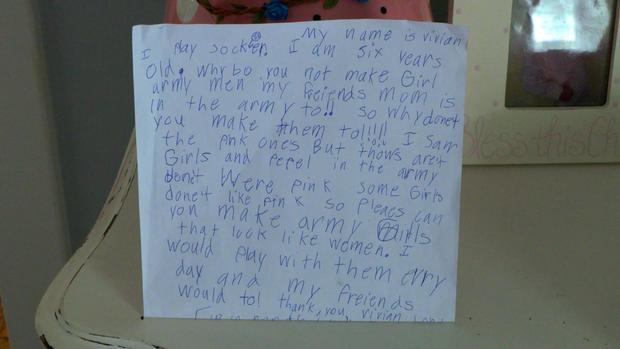 My name is vivian
I play socker. I am six years
old. why bo you not make Girl
army men my freiends mom is
in the army to!! so why donet
you make them to!!!! I saw
the pnk ones But thows aret
Girls and pepel in the army
donet Were pink some Girls
donet like pink so pleaes can
you make army Girls
that look like women. I
would play with them evry
day and my freiends
would to! thank, you, vivian
Bless this Ch